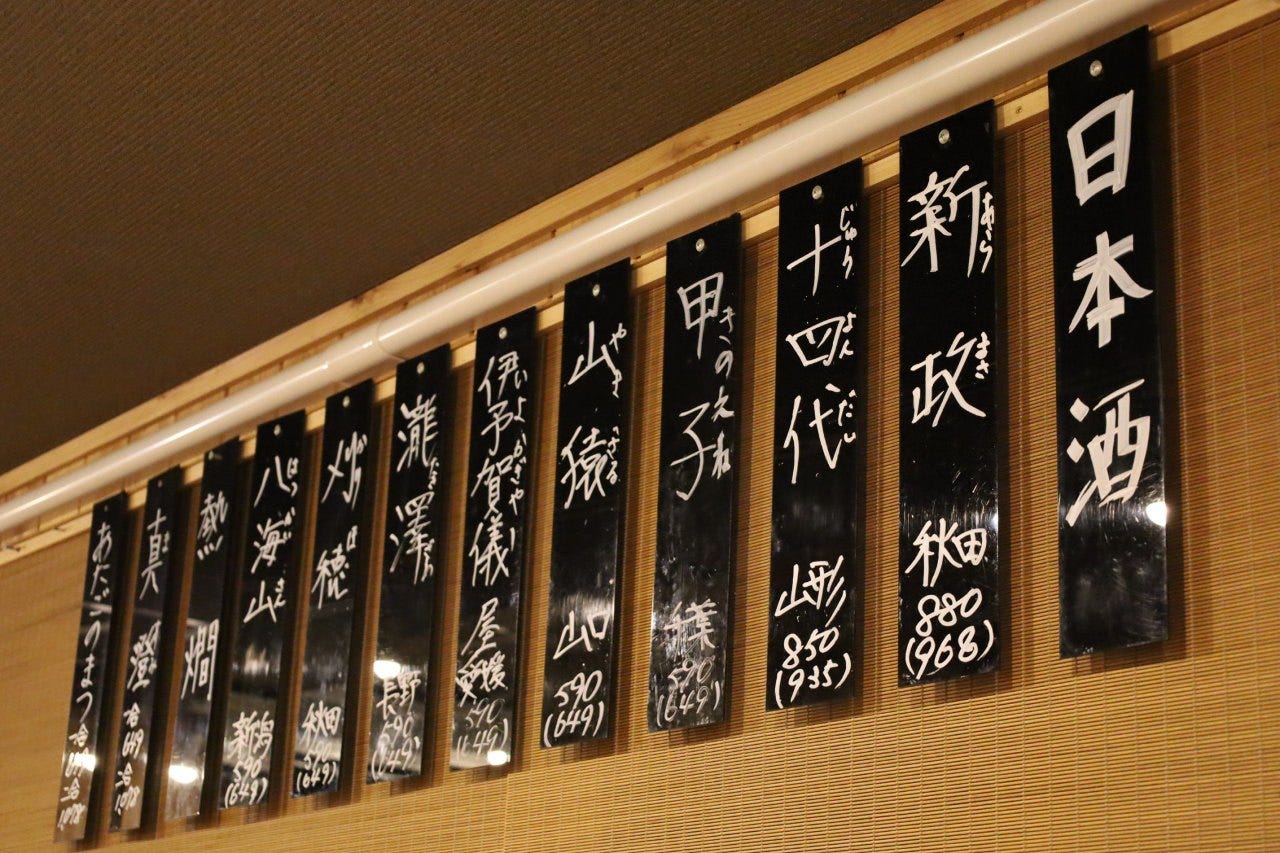 日本酒
新政 あらまさ 秋田 880 (968)
十四代 じゅうよんだい 山形 850 (935)
甲子 きのえね 千葉 590 (649)
山猿 やまざる 山口 590 (649)
伊予賀儀屋 いよかぎや 愛媛 590 (649)
瀧澤 長野 590 (649)
穂 ほ 秋田 590 (649)
八海山 はっかいさん 新潟 590 (649)
熱燗
真澄 一合 649 二合 1,078
あたごのまつ 一合 二合 1,078